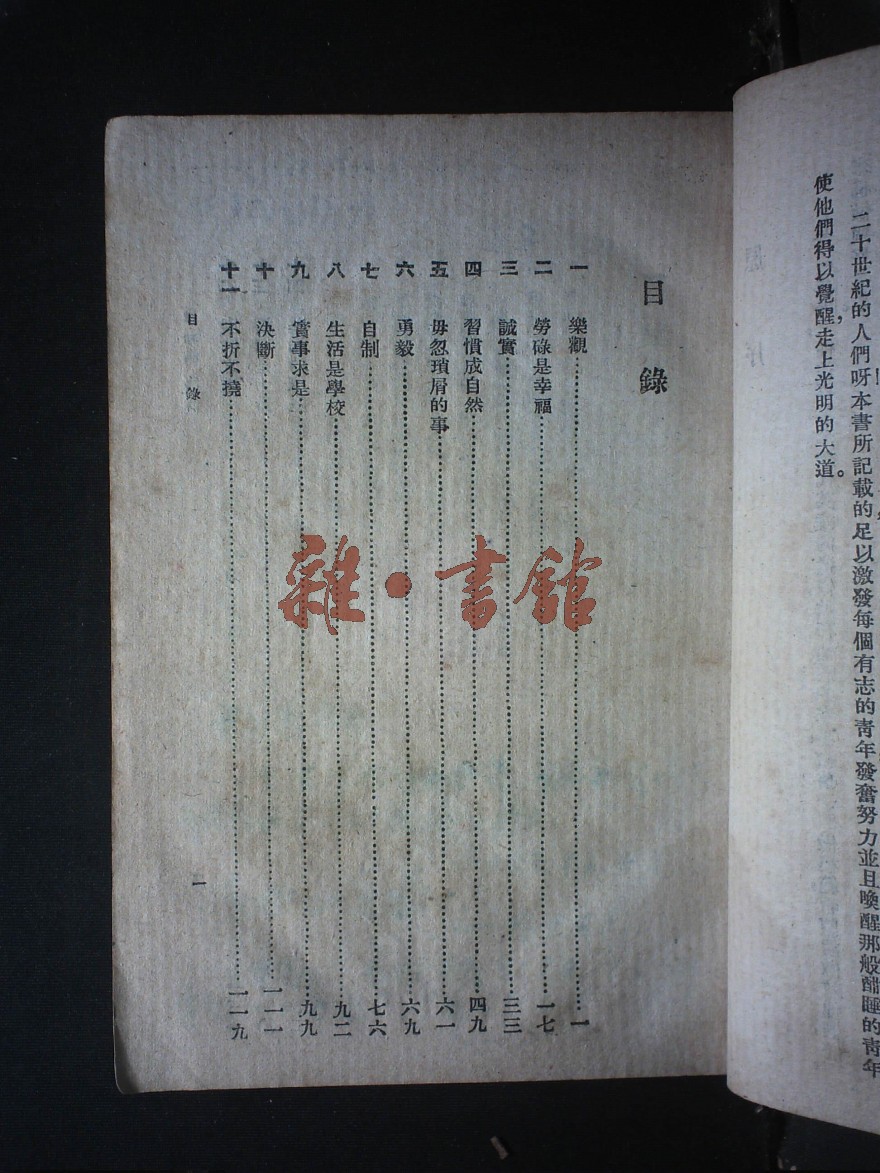 二十世紀的人們呀本書所記載的足以激發每個有志的青年發奮努力並且喚醒那般酣睡的青年
使他們得以覺醒，走上光明的大道。
目錄
一 樂觀 一
二 勞碌是幸福 一七
三 誠實 三三
四 習慣成自然 四九
五 毋忽瑣屑的事 六一
六 勇毅 六九
七 自制 七六
八 生活是學校 九二
九 實事求是 九九
十 決斷 一一一
十一 不折不撓 一一九
目錄 一
雜·書館